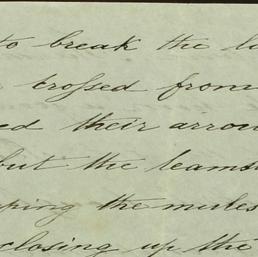 to break the
crossed from
ed their arrow
but the teams
ping the mules
closing up the